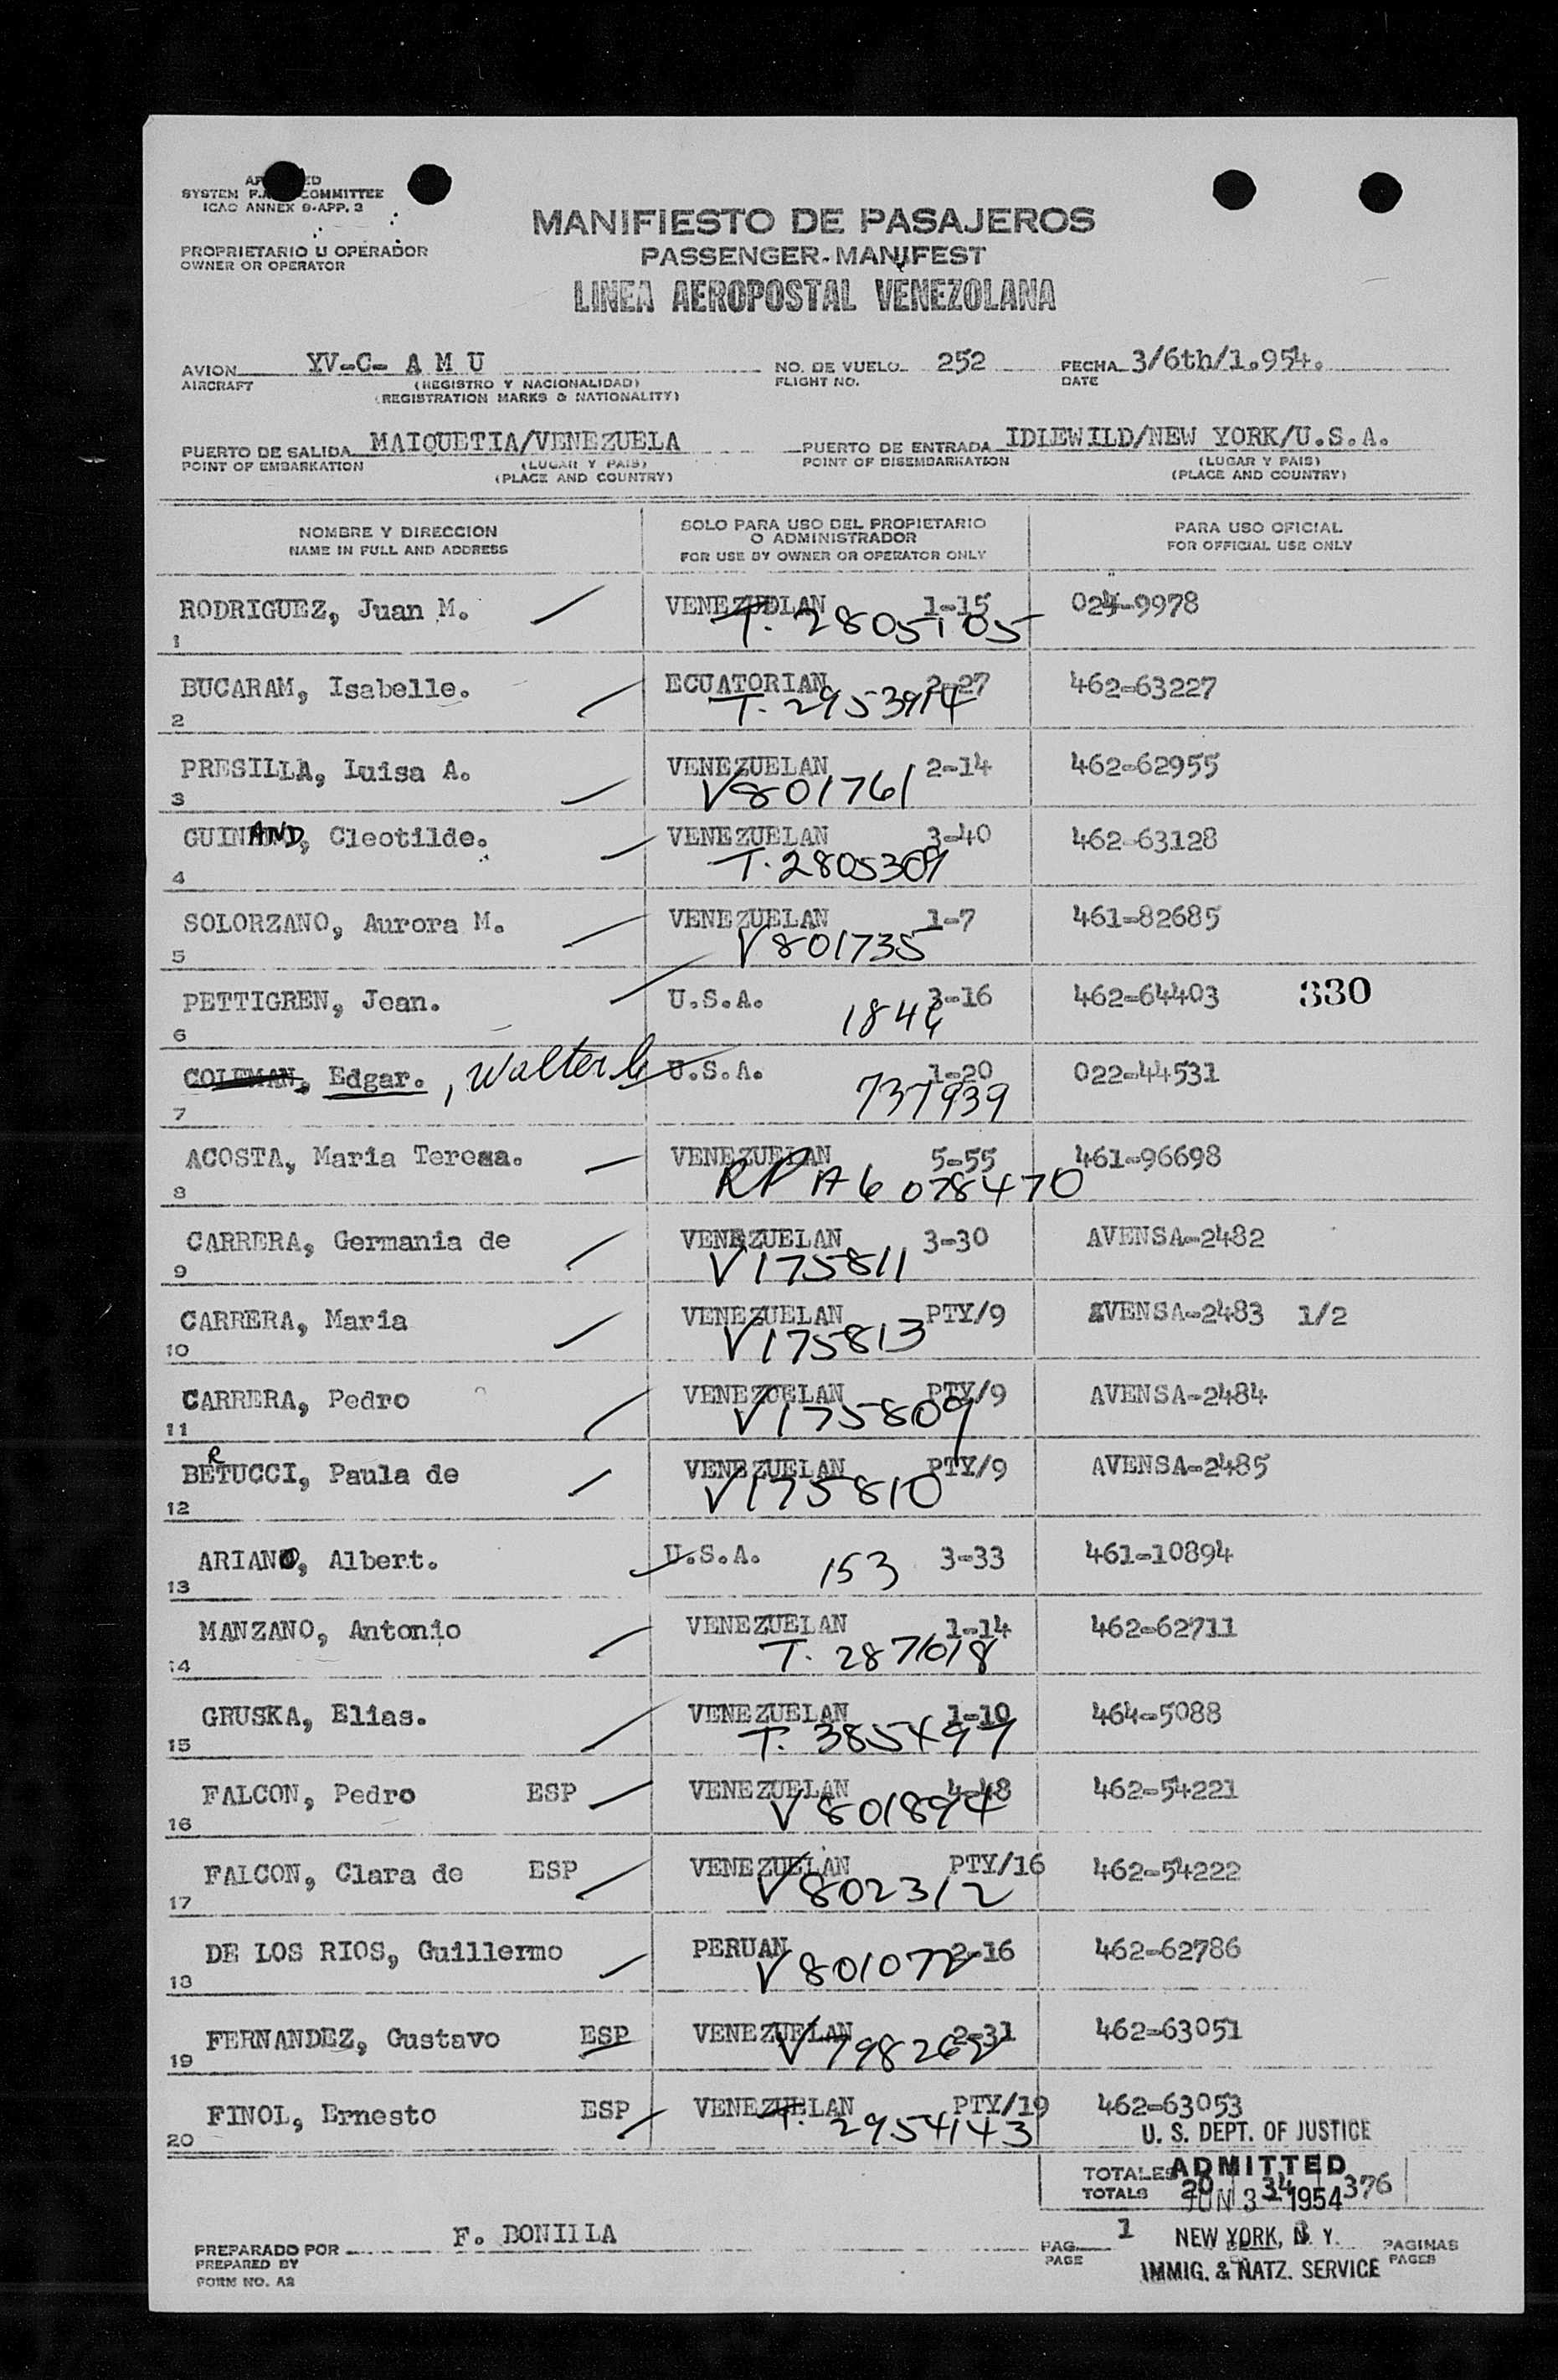 SYSTEM F.A. COMMITTEE
ICAO ANNEX 9-APP. 3
PROPRIETARIO U OPERADOR
OWNER OR OPERATOR
MANIFIESTO DE PASAJEROS
PASSENGER-MANIFEST
LINEA AEROPOSTAL VENEZOLANA
AVION YV-C- A M U NO. DE VUELO 252 FECHA 3/6th/1.954.
AIRCRAFT (REGISTRO Y NACIONALIDAD) FLIGHT NO. DATE
(REGISTRATION MARKS & NATIONALITY)
PUERTO DE SALIDA MAIQUETIA/VENEZUELA PUERTO DE ENTRADA IDLEWILD/NEW YORK/U.S.A.
POINT OF EMBARKATION (LUGAR Y PAIS) POINT OF DISEMBARKATION (LUGAR Y PAIS)
(PLACE AND COUNTRY) (PLACE AND COUNTRY)
NOMBRE Y DIRECCION SOLO PARA USO DEL PROPIETARIO PARA USO OFICIAL
O ADMINISTRADOR
NAME IN FULL AND ADDRESS FOR USE BY OWNER OR OPERATOR ONLY FOR OFFICIAL USE ONLY
RODRIGUEZ, Juan M. VENEZUELAN 1-15 024-9978
1 T. 2805105
BUCARAM, Isabelle. ECUATORIAN 2-27 462-63227
2 T. 2953914
PRESILLA, Luisa A. VENEZUELAN 2-14 462-62955
3 V801761
GUINAND, Cleotilde. VENEZUELAN 3-40 462-63128
4 T. 2805309
SOLORZANO, Aurora M. VENEZUELAN 1-7 461-82685
5 V801735
PETTIGREN, Jean. U.S.A. 3-16 462-64403 330
6 1846
COLEMAN, Edgar. , Walter U.S.A. 1-20 022-44531
7 737939
ACOSTA, Maria Teresa. VENEZUELAN 5-55 461-96698
8 RP A6 078470
CARRERA, Germania de VENEZUELAN 3-30 AVENSA-2482
9 V175811
CARRERA, Maria VENEZUELAN PTY/9 AVENSA-2483 1/2
10 V175813
CARRERA, Pedro VENEZUELAN PTY/9 AVENSA-2484
11 V175809
BERTUCCI, Paula de VENEZUELAN PTY/9 AVENSA-2485
12 V175810
ARIANO, Albert. U.S.A. 153 3-33 461-10894
13
MANZANO, Antonio VENEZUELAN 1-14 462-62711
14 T. 2871018
GRUSKA, Elias. VENEZUELAN 1-10 464-5088
15 T. 3854999
FALCON, Pedro ESP VENEZUELAN 4-48 462-54221
16 V801894
FALCON, Clara de ESP VENEZUELAN PTY/16 462-54222
17 V802312
DE LOS RIOS, Guillermo PERUAN 2-16 462-62786
18 V801072
FERNANDEZ, Gustavo ESP VENEZUELAN 2-31 462-63051
19 V798262
FINOL, Ernesto ESP VENEZUELAN PTY/19 462-63053
20 T. 2954143
U. S. DEPT. OF JUSTICE
TOTALES ADMITTED
TOTALS 20 34 376
JUN 3 1954
F. BONILLA 1 NEW YORK, N. Y.
PREPARADO POR PAG. PAGINAS
PREPARED BY PAGE IMMIG. & NATZ. SERVICE PAGES
FORM NO. A2